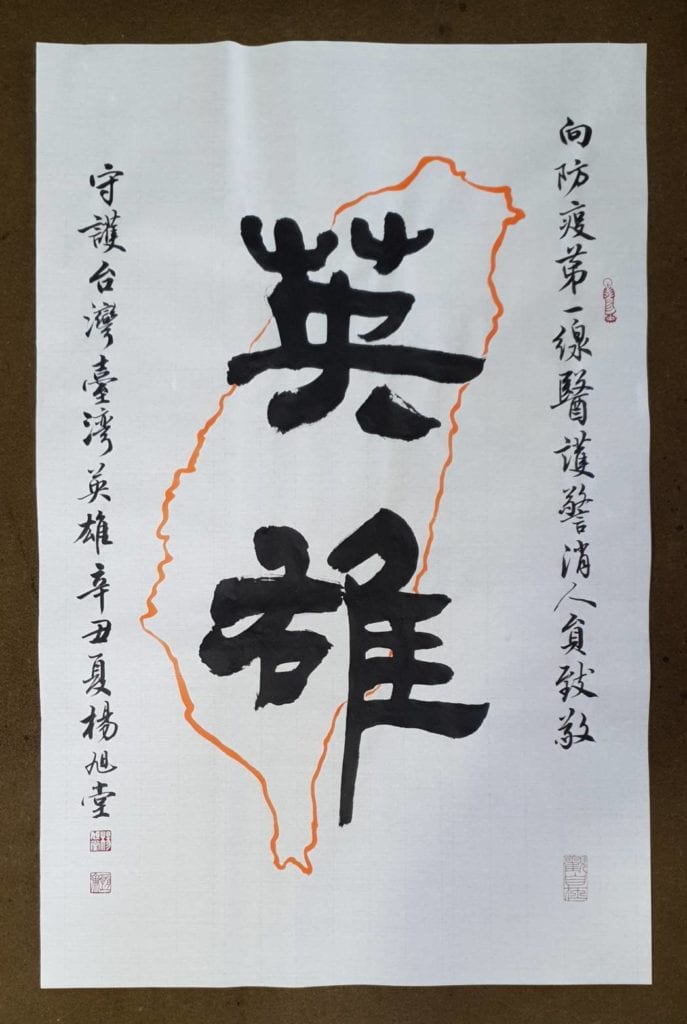 向防疫第一線醫護警消人員致敬
英雄
守護台灣臺湾英雄辛丑夏楊旭堂